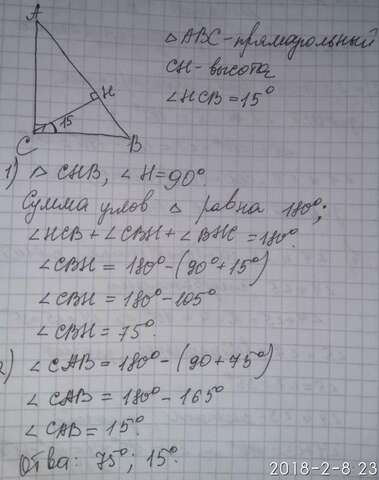 A
△ABC - прямоугольный
CH - высота
∠HCB = 15°
H
15
C
B
1) △ CHB, ∠H = 90°.
Сумма углов △ равна 180°;
∠HCB + ∠CBH + ∠BHC = 180°.
∠CBH = 180° - (90° + 15°)
∠CBH = 180° - 105°
∠CBH = 75°.
2) ∠CAB = 180° - (90 + 75°)
∠CAB = 180° - 165°
∠CAB = 15°.
Ответ: 75°; 15°.
2018-2-8 23